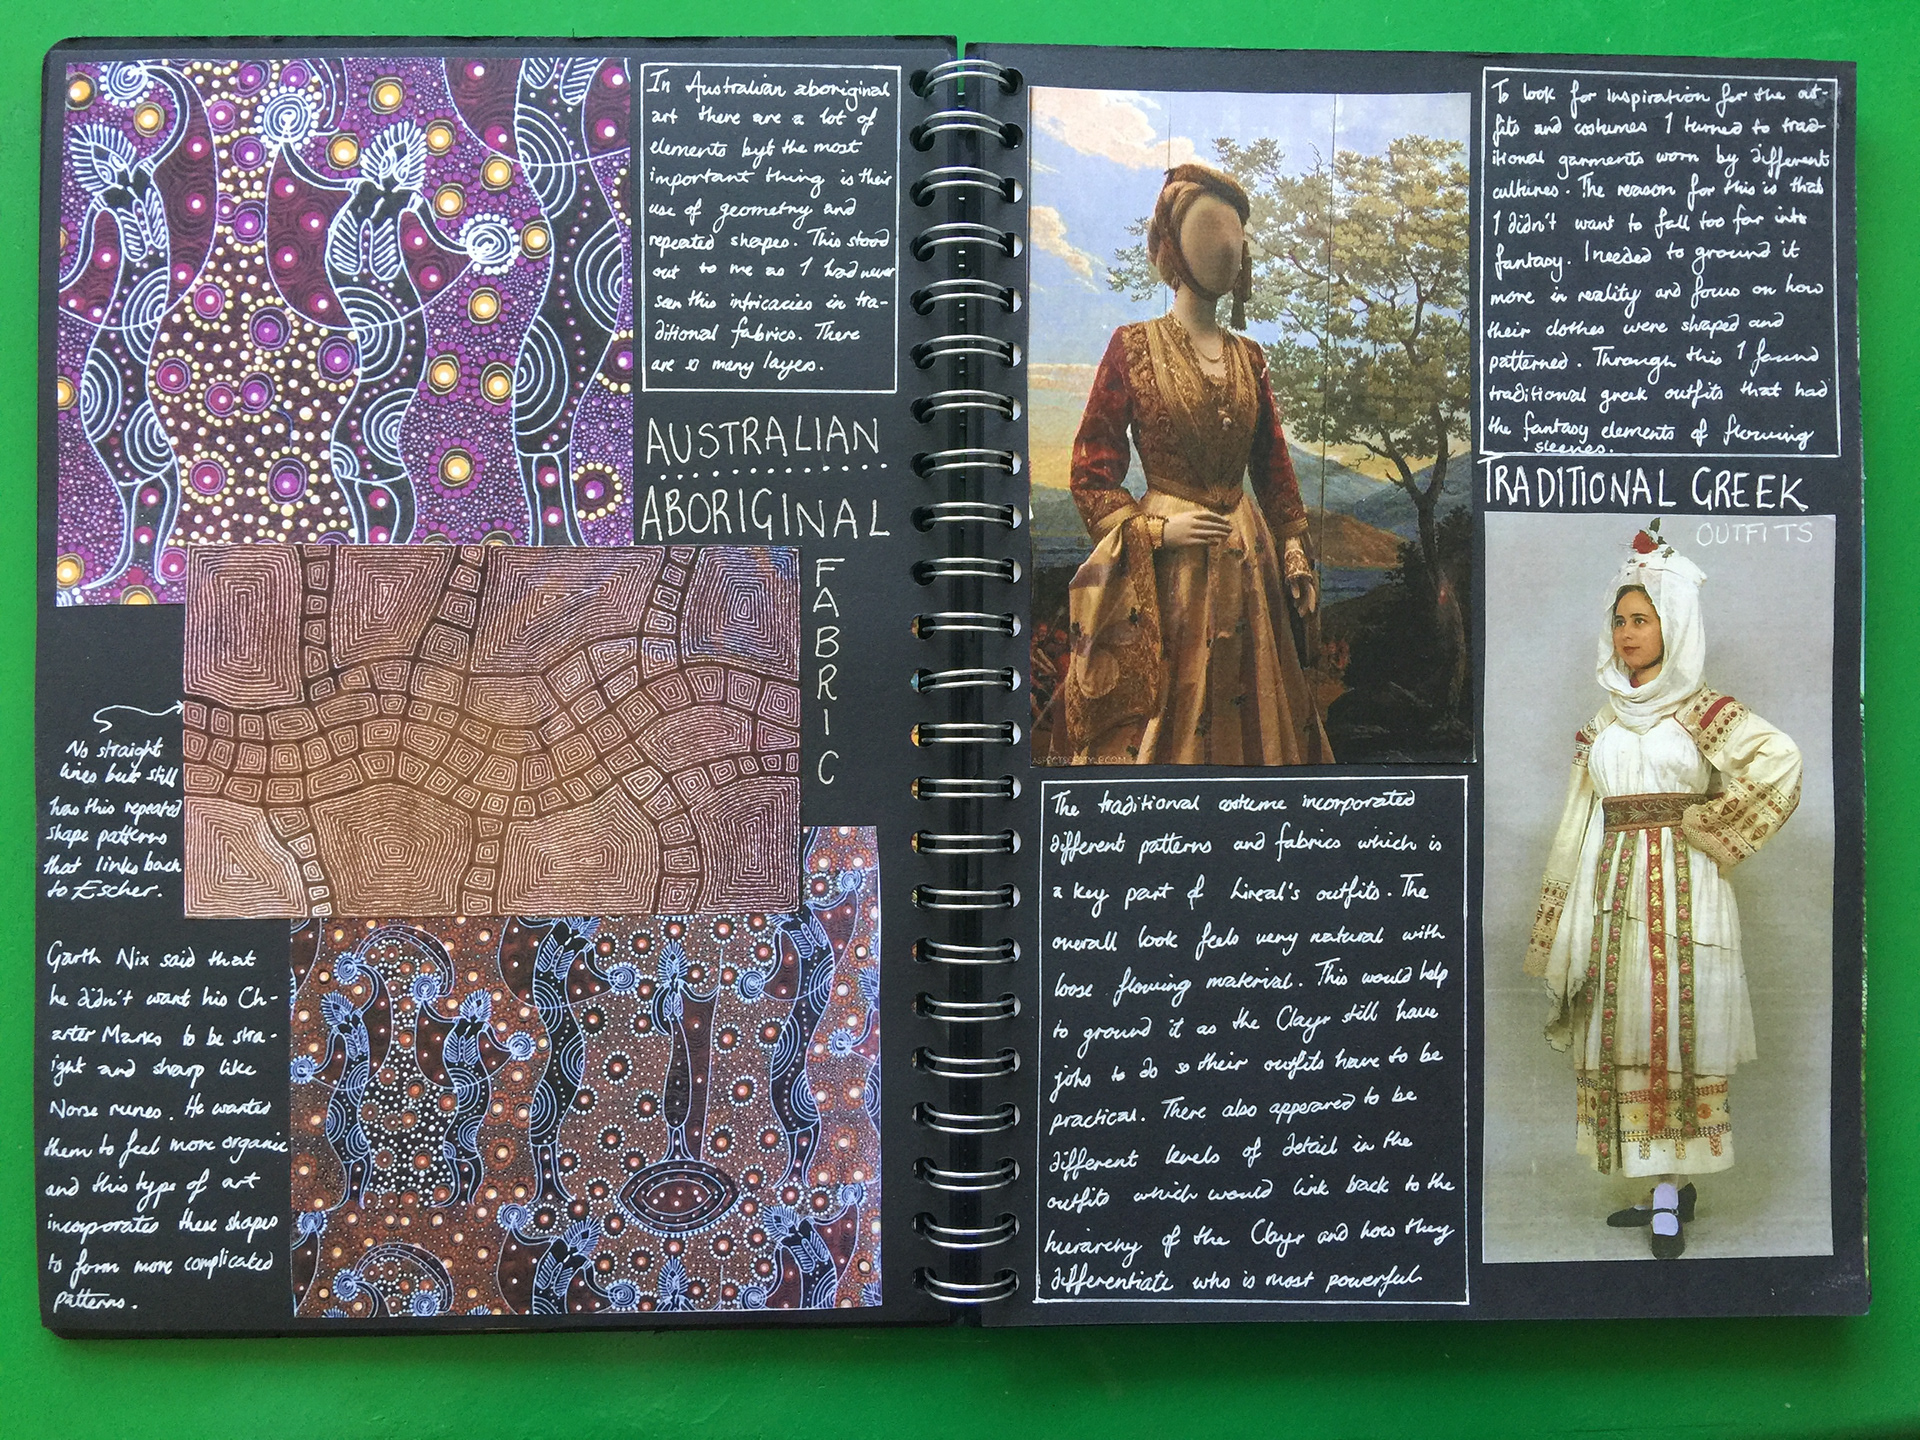 In Australian aboriginal
art there are a lot of
elements byt the most
important thing is their
use of geometry and
repeated shapes. This stood
out to me as I had never
seen this intricacies in tra-
ditional fabrics. There
are so many layers.
AUSTRALIAN
ABORIGINAL
FABRIC
No straight
lines but still
has this repeated
shape patterns
that links back
to Escher.
Garth Nix said that
he didn't want his Ch-
arter Marks to be stra-
ight and sharp like
Norse runes. He wanted
them to feel more organic
and this type of art
incorporates these shapes
to form more complicated
patterns.
To look for inspiration for the out-
fits and costumes I turned to trad-
itional garments worn by different
cultures. The reason for this is that
I didn't want to fall too far into
fantasy. I needed to ground it
more in reality and focus on how
their clothes were shaped and
patterned. Through this I found
traditional greek outfits that had
the fantasy elements of flowing
sleeves.
TRADITIONAL GREEK
OUTFITS
ASPECTSOFSTYLE.COM
The traditional costume incorporated
different patterns and fabrics which is
a key part of Lireal's outfits. The
overall look feels very natural with
loose flowing material. This would help
to ground it as the Clayr still have
jobs to do so their outfits have to be
practical. There also appeared to be
different levels of detail in the
outfits which would link back to the
hierarchy of the Clayr and how they
differentiate who is most powerful.